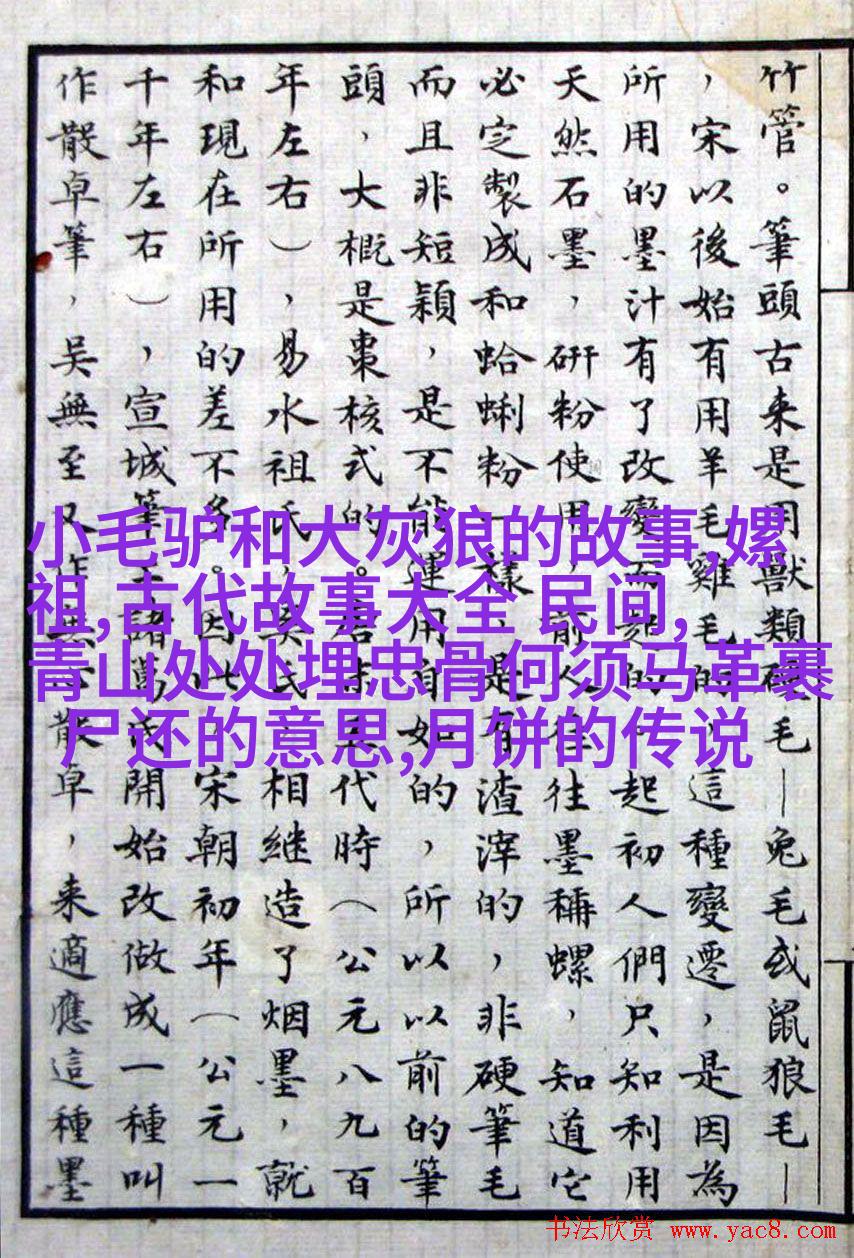 竹管。筆頭古来是用獸類硬毛—兔毛或鼠狼毛—
，宋以後始有用羊毛雞毛的，這種變遷，是因為
所用的墨汁有了改變而起的。起初人們只知利用
天然石墨，研粉使用，前人往往墨稱螺，知道它
必定製成和蛤蜊粉一樣，是有渣滓的，非硬筆毛
而且非短穎，是不能運用自如的，所以以前的筆
頭，大概是棗核式的。五代時（公元八九百
年左右），易水祖氏，奚氏，相継造了烟墨，就
和現在所用的差不多。因此，宋朝初年（公元一
千年左右），宣城筆工諸葛氏開始改做成一種叫
作散卓筆，吳無至又作無散卓，来適應這種墨
小毛驴和大灰狼的故事,嫘
祖,古代故事大全 民间,
青山处处埋忠骨何须马革裹
尸还的意思,月饼的传说
书法欣赏 www.yac8.com